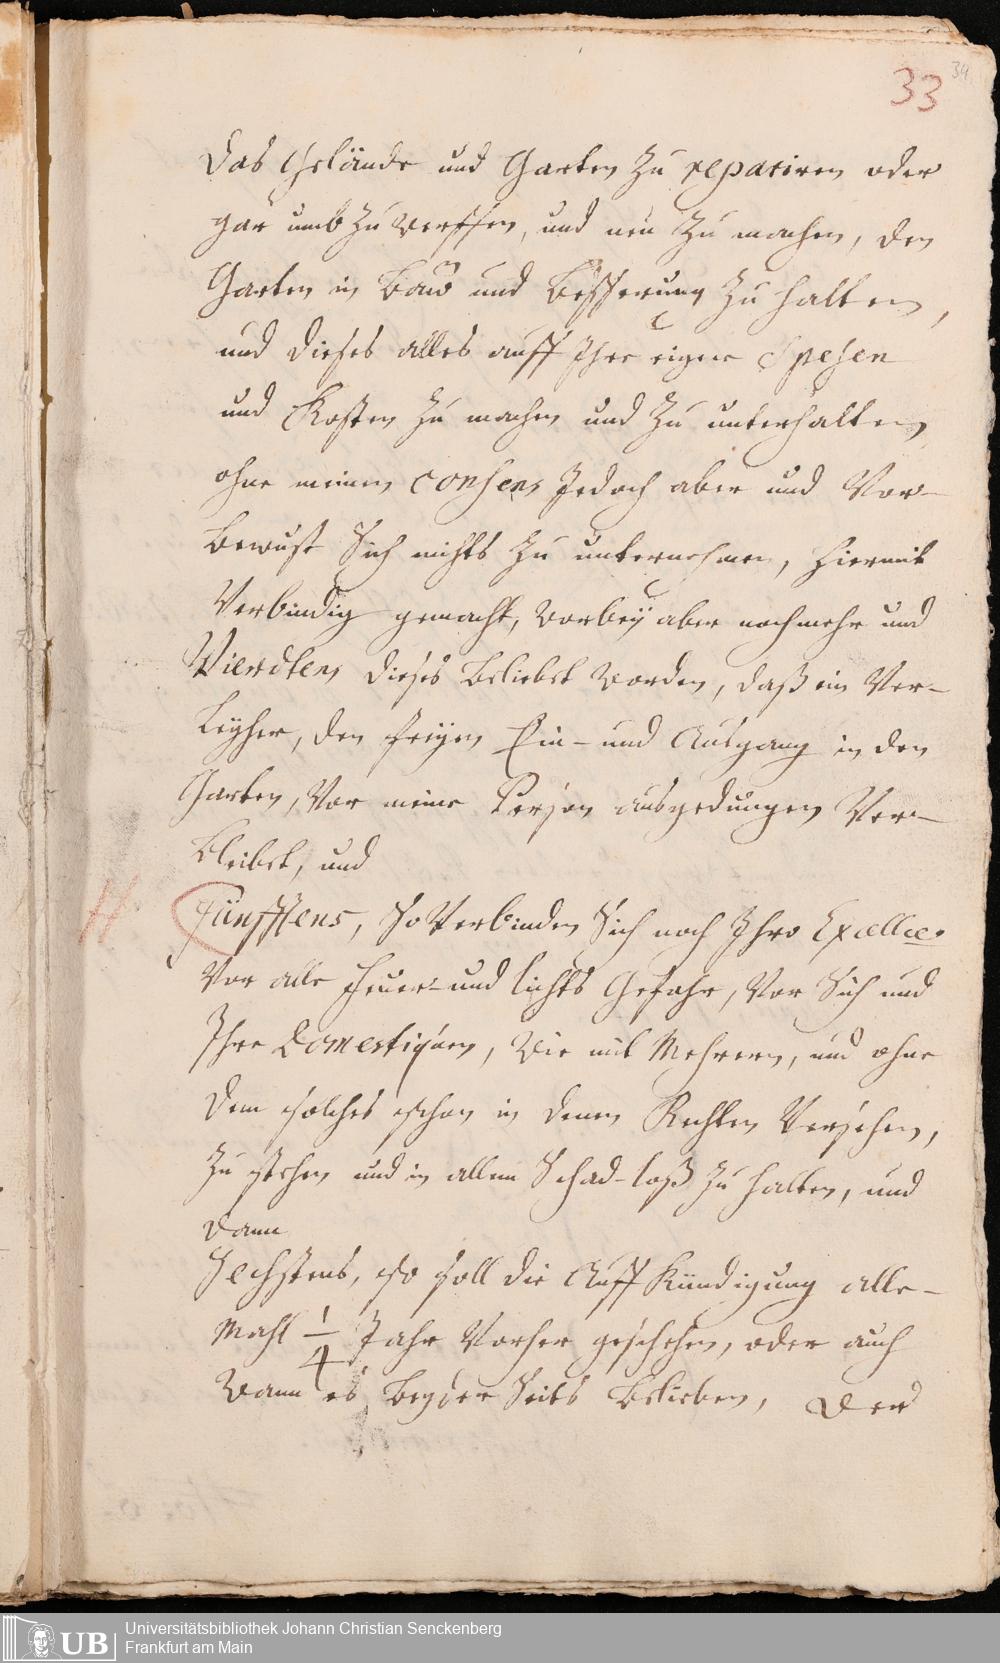 33 34
das Gelände und Garten zu repariren oder
gar umb zu werffen, und neu zu machen, den
Garten in Bau und Besserung zu halten,
und dieses alles auff Ihre eigene Spesen
und Kosten zu machen und zu unterhalten
ohne meinen consens Jedoch aber und Vor-
bewust Sich nichts zu unternehmen, hiermit
Verbindig gemacht, worbey aber nochmehr und
Vierdtens dieses beliebet worden, daß ein Ver-
leyher, den freyen Ein- und Ausgang in den
Garten, Vor meine Person ausgedungen Ver-
bleibet, und
H Fünfftens, So Verbinden Sich noch Ihro Excellce.
Vor alle Feuer- und lichts Gefahr, Vor Sich und
Ihre Domestiquen, wie mit Mehrern, und ohne
dem solches schon in denen Rechten Versehen,
zu stehen und in allem Schad-loß zu halten, und
dann
Sechstens, so soll die Auff Kündigung alle-
Mahl 1/4 Jahr Vorher geschehen, oder auch
wann es beyder Seits belieben, der
UB
Universitätsbibliothek Johann Christian Senckenberg
Frankfurt am Main